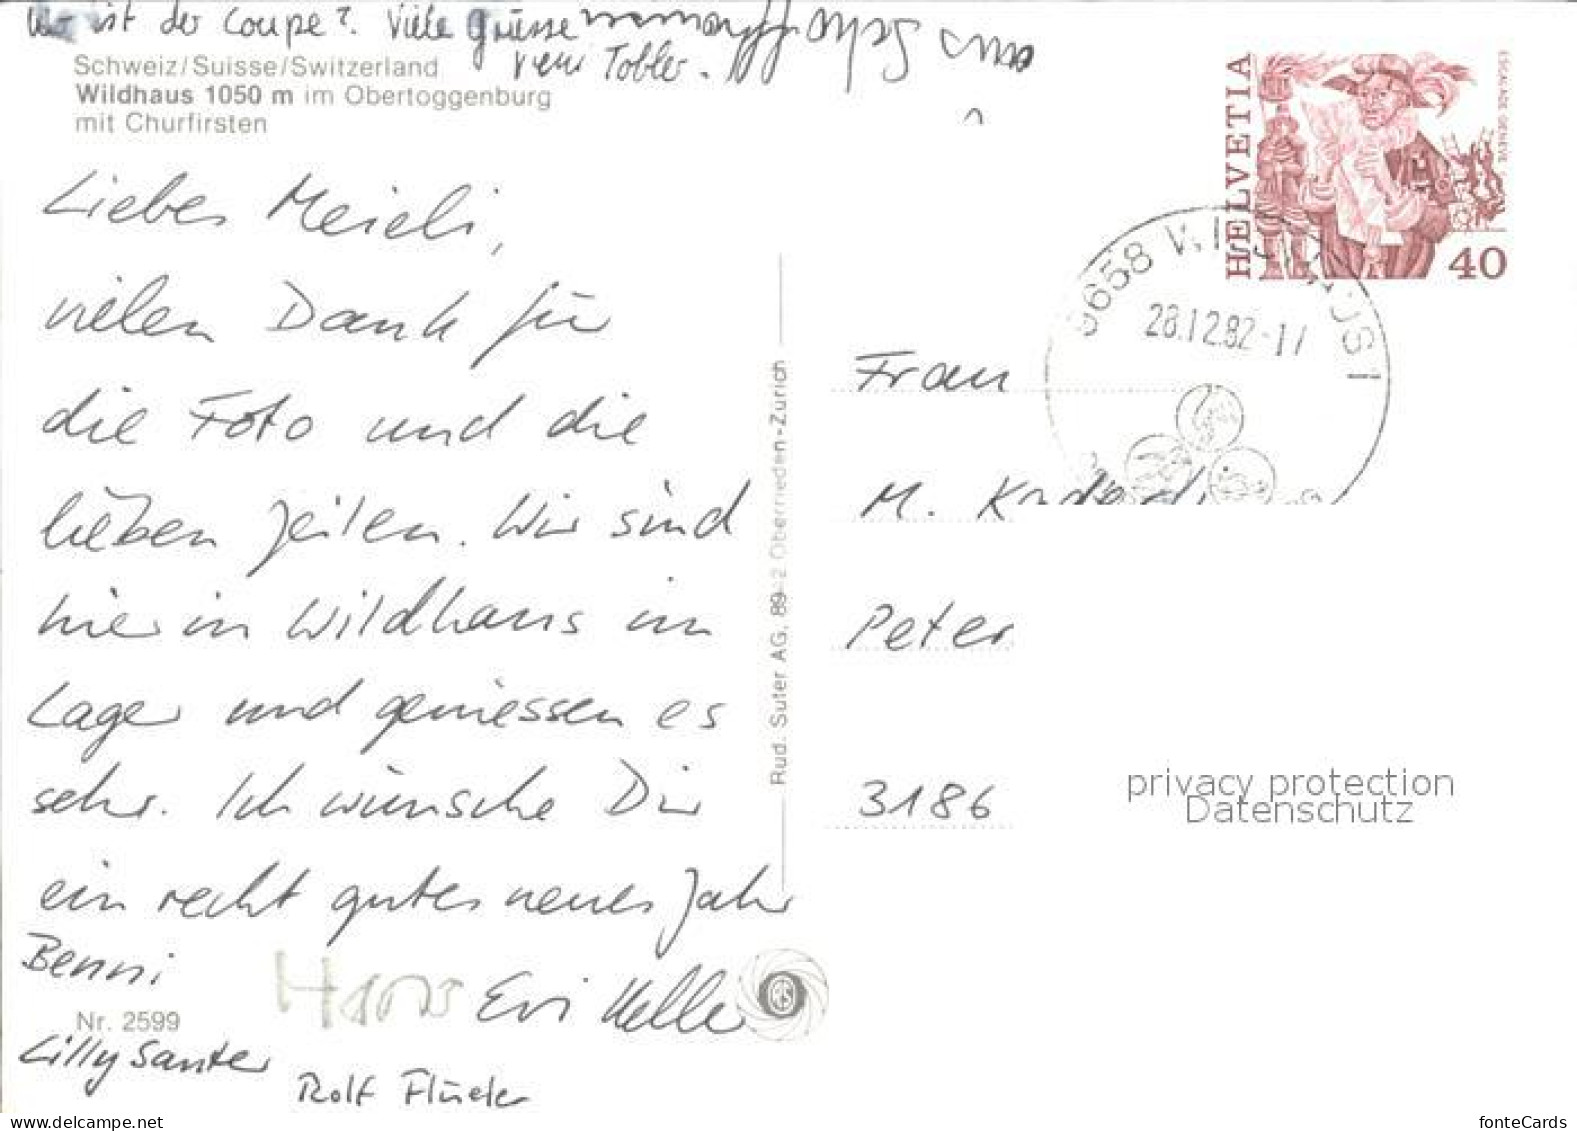 ist der Coupe? Viele Grüsse
Vreni Tobler.
Schweiz/Suisse/Switzerland
Wildhaus 1050 m im Obertoggenburg
mit Churfirsten
Liebes Meieli,
vielen Dank für
die Foto und die
lieben Zeilen. Wir sind
hier in Wildhaus im
Lager und geniessen es
sehr. Ich wünsche Dir
ein recht gutes neues Jahr
Benni
Hans
Evi Kelle
Nr. 2599
Lilly Santer
Rolf
Rud. Suter AG, 8942 Oberrieden-Zürich
HELVETIA
ESCALADE GENÈVE
40
9658 WILDHAUS
28.12.82-17
Frau
M.
Peter
3186
privacy protection
Datenschutz
www.delcampe.net
fonteCards